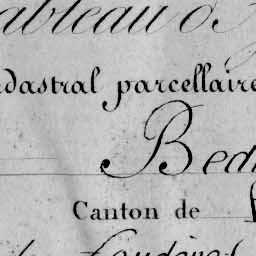 ableau d'
adastral parcellaire
Bed
Canton de